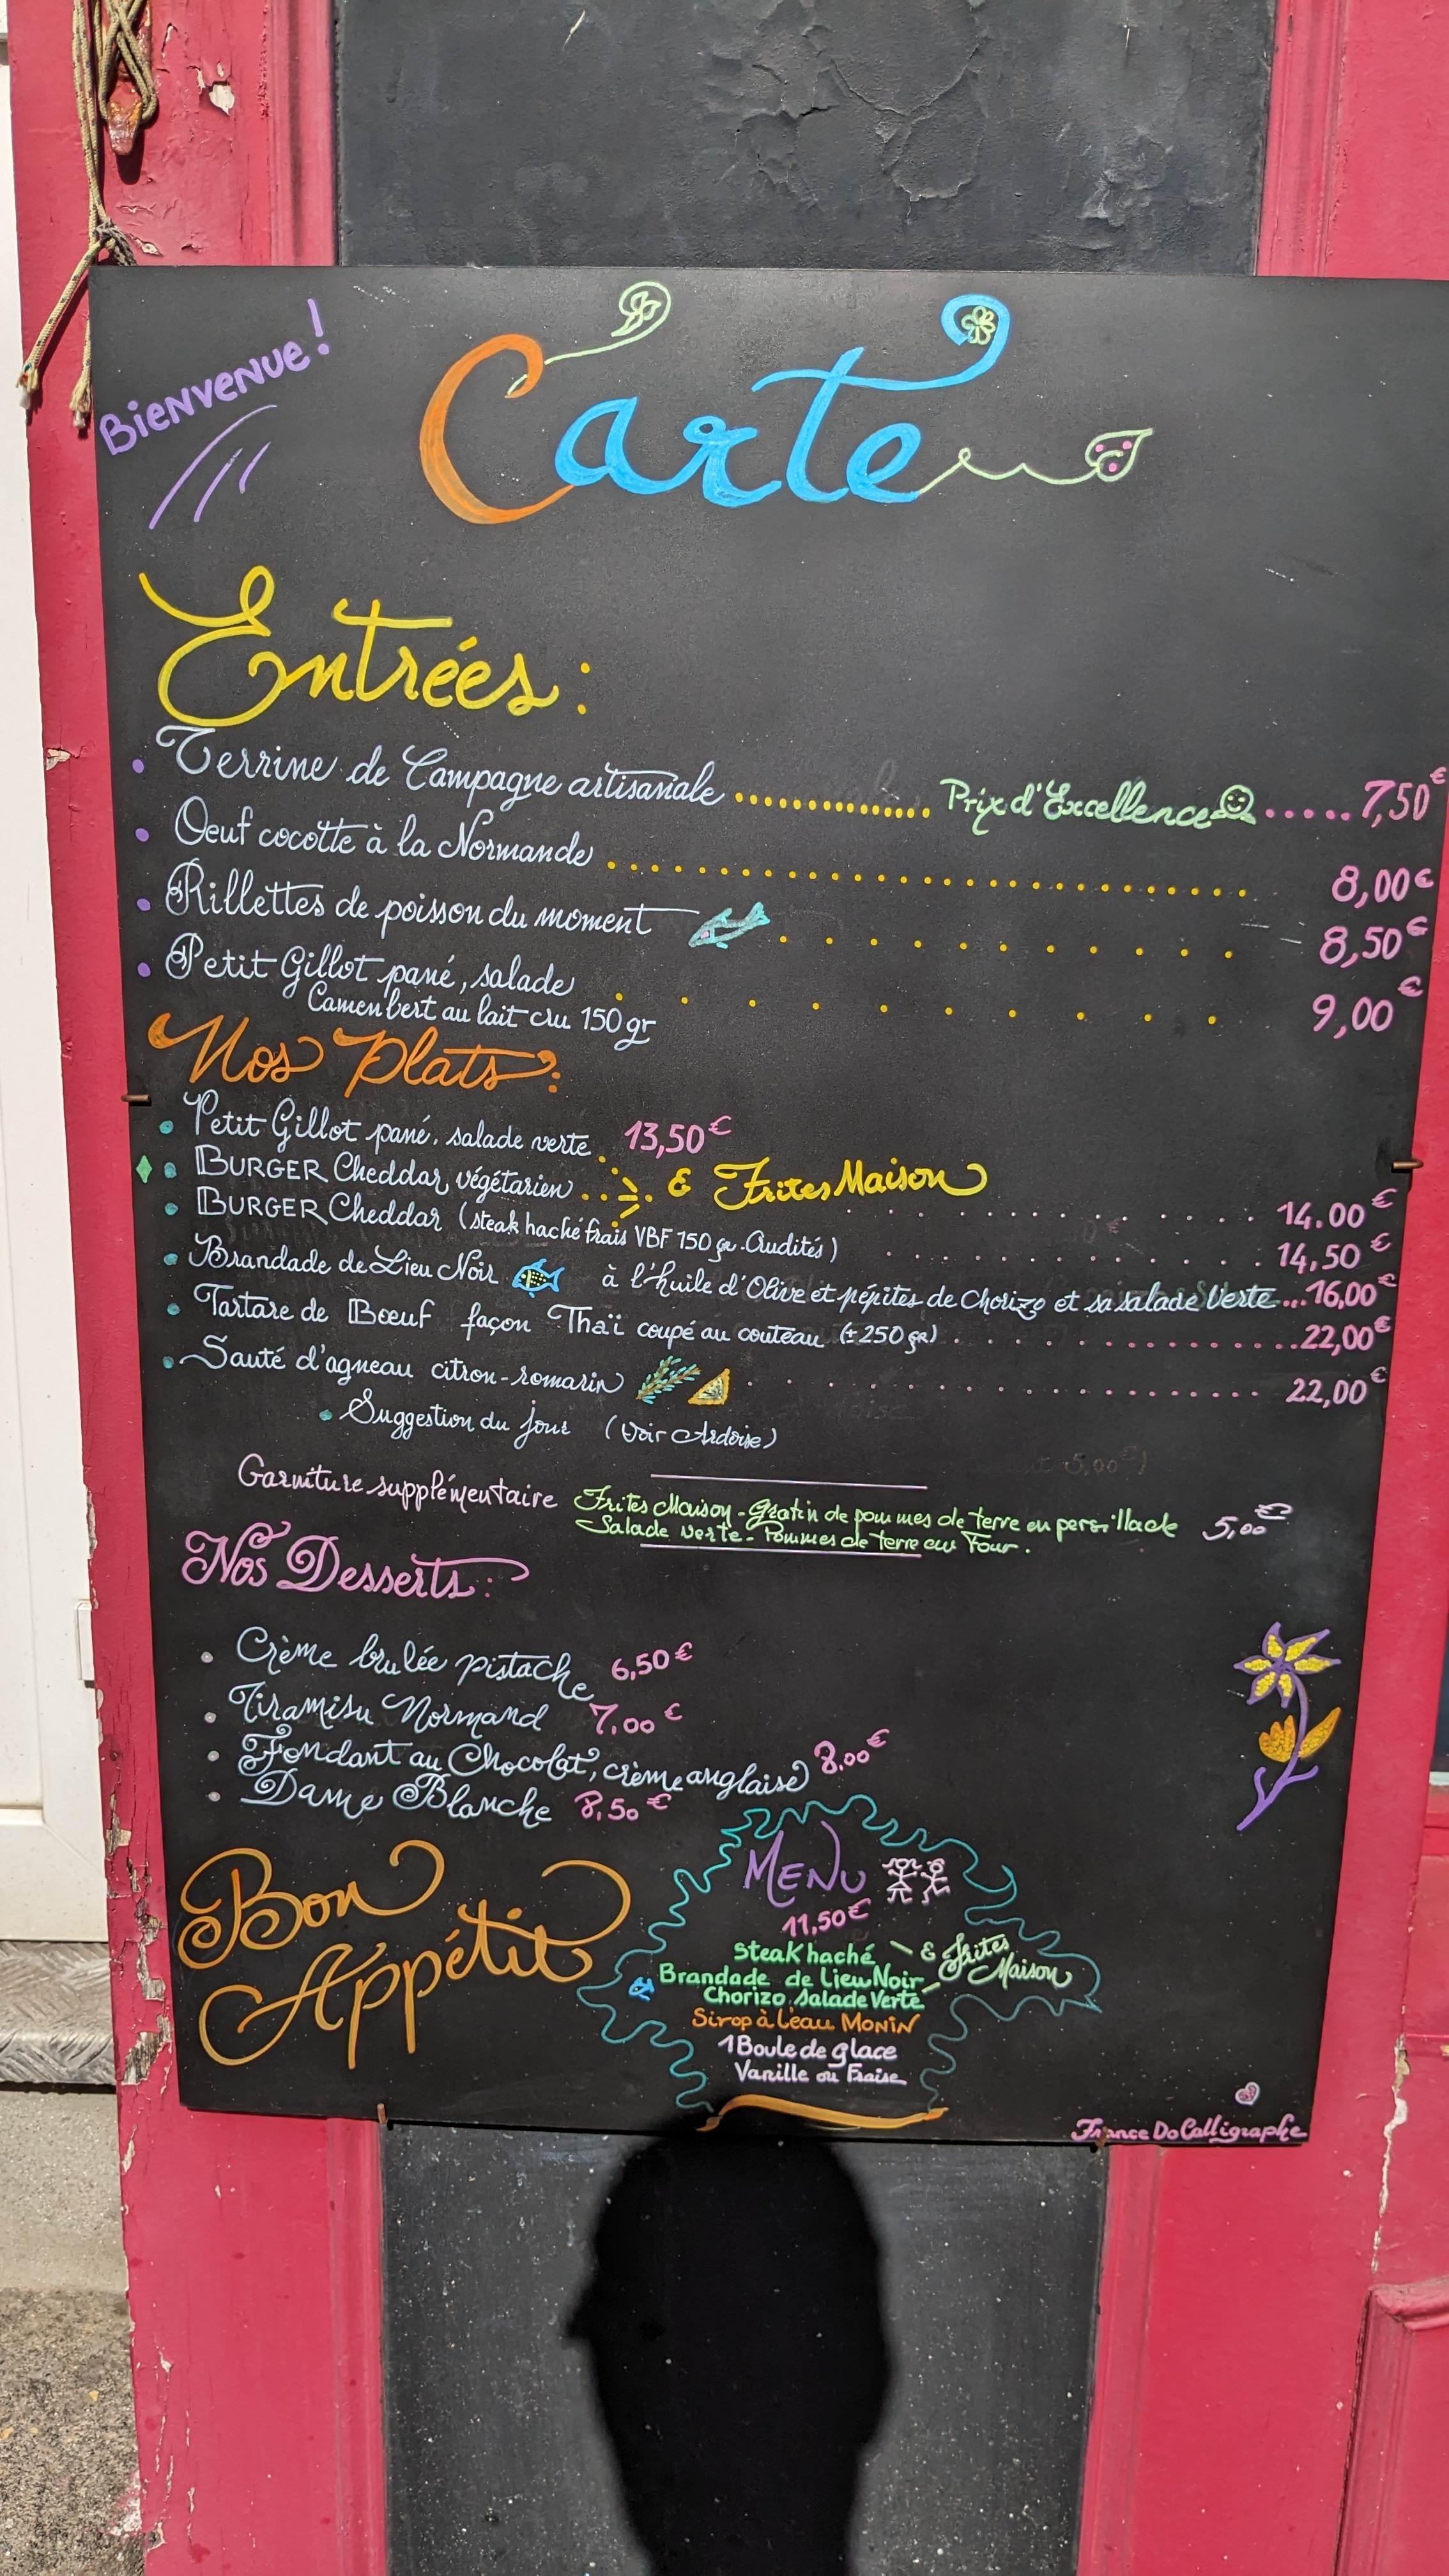 Bienvenue !
Carte
Entrées :
Terrine de Campagne artisanale ............. Prix d'Excellence ..... 7,50€
Oeuf cocotte à la Normande ........ 8,00€
Rillettes de poisson du moment ........ 8,50€
Petit Gillot pané, salade ........ 9,00€
Camenbert au lait cru 150 gr
Nos Plats :
Petit Gillot pané, salade verte 13,50€
BURGER Cheddar végétarien ... & Frites Maison ........ 14.00€
BURGER Cheddar (steak haché frais VBF 150 gr. Crudités) ........ 14,50€
Brandade de Lieu Noir à l'huile d'Olive et pépites de Chorizo et sa salade Verte ... 16,00€
Tartare de Bœuf façon Thaï coupé au couteau (±250 gr) ........ 22,00€
Sauté d'agneau citron-romarin ........ 22,00€
Suggestion du jour (Voir Ardoise)
Garniture supplémentaire Frites Maison - Gratin de pommes de terre en persillade 5,00€
Salade verte - Pommes de terre au Four.
Nos Desserts :
Crème brulée pistache 6,50€
Tiramisu Normand 7,00€
Fondant au Chocolat, crème anglaise 8.00€
Dame Blanche 8,50€
Bon
Appétit
MENU
11,50€
Steak haché & Frites
Brandade de Lieu Noir Maison
Chorizo Salade Verte
Sirop à l'eau MONIN
1 Boule de glace
Vanille ou Fraise
France Do Calligraphe